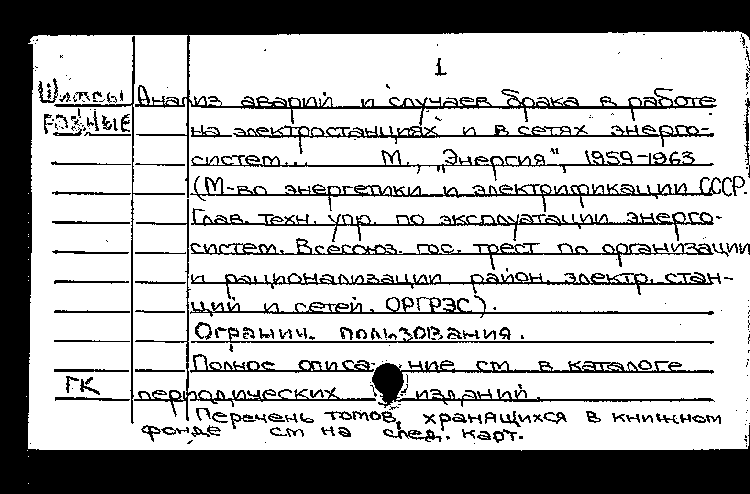 1
Шифры Анализ аварий и случаев брака в работе
разные на электростанциях и в сетях энерго-
систем... М., „Энергия", 1959-1963
(М-во энергетики и электрификации СССР.
Глав. техн. упр. по эксплуатации энерго-
систем. Всесоюз. гос. трест по организации
и рационализации район. электр. стан-
ций и сетей. ОРГРЭС).
Огранич. пользования.
Полное описание см в каталоге
ГК периодических изданий.
Перечень томов, хранящихся в книжном
фонде см на след. карт.